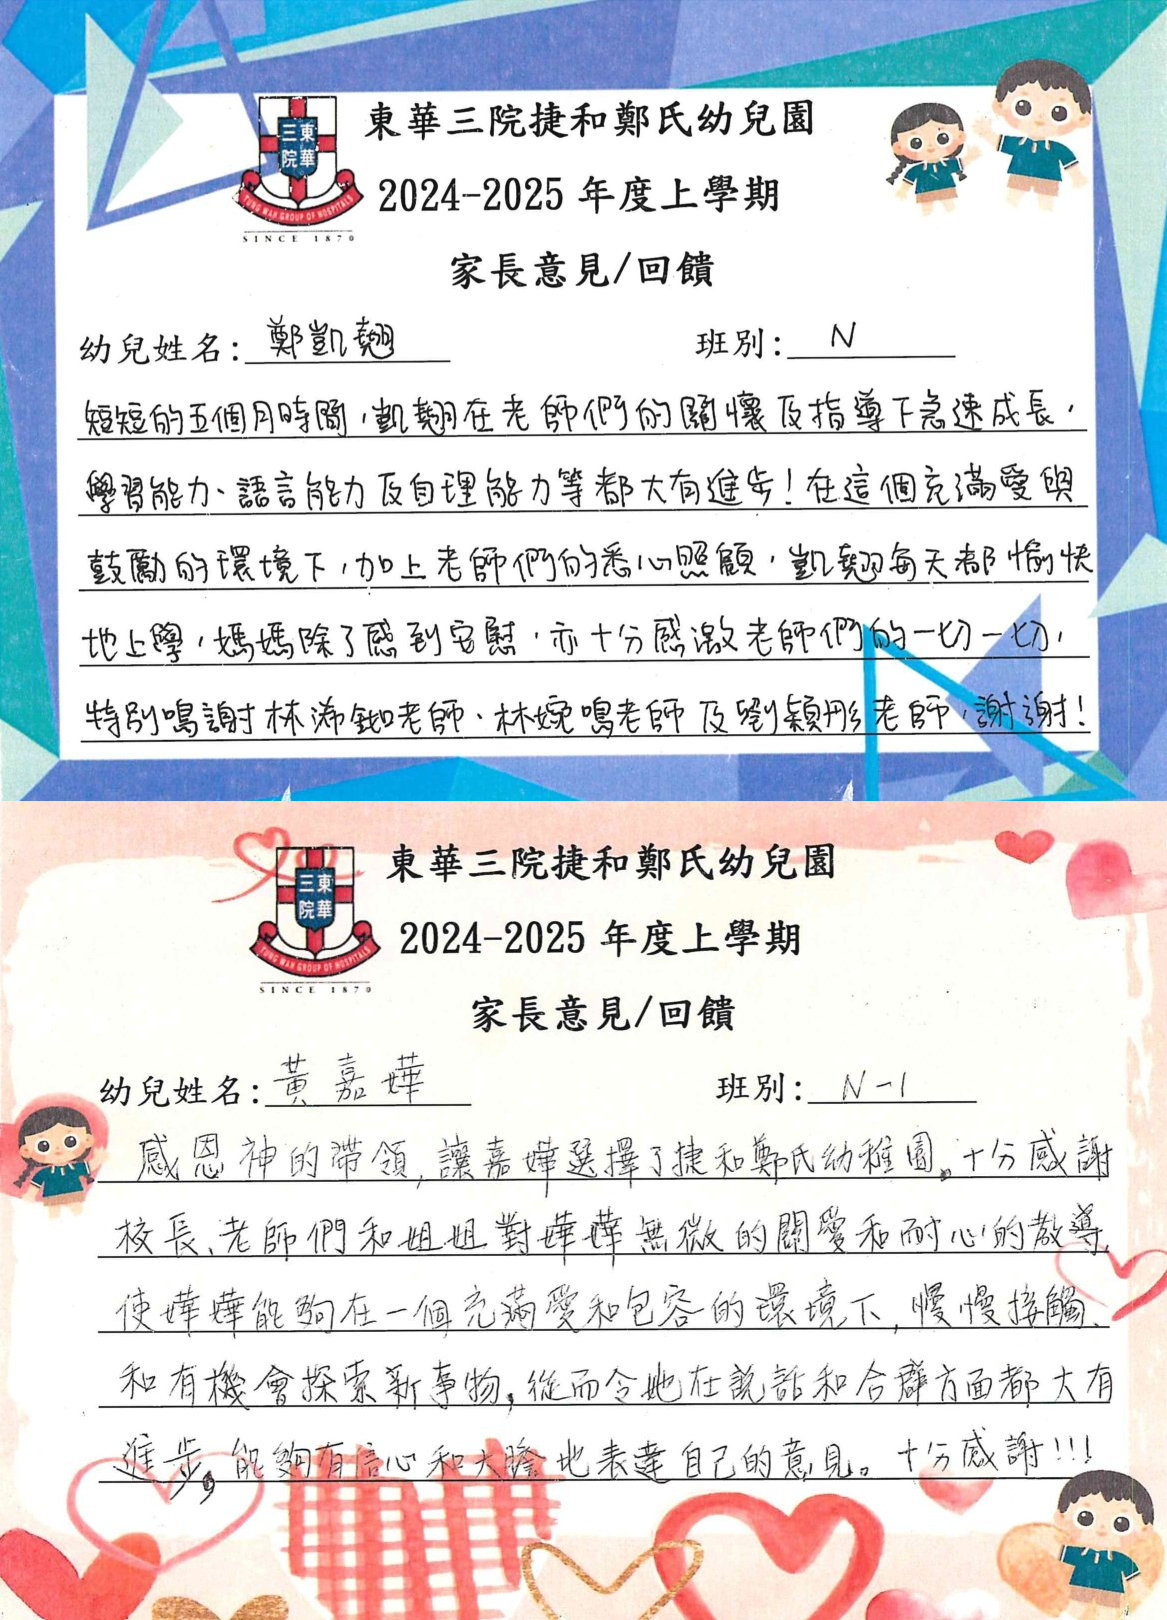 東華三院
TUNG WAH GROUP OF HOSPITALS
SINCE 1870
東華三院捷和鄭氏幼兒園
2024-2025 年度上學期
家長意見/回饋
幼兒姓名：鄭凱翹 班別：N
短短的五個月時間，凱翹在老師們的關懷及指導下急速成長，
學習能力、語言能力及自理能力等都大有進步！在這個充滿愛與
鼓勵的環境下，加上老師們的悉心照顧，凱翹每天都愉快
地上學，媽媽除了感到安慰，亦十分感激老師們的一切一切，
特別鳴謝林浠鈿老師、林婉鳴老師及劉穎彤老師，謝謝！
東華三院
TUNG WAH GROUP OF HOSPITALS
SINCE 1870
東華三院捷和鄭氏幼兒園
2024-2025 年度上學期
家長意見/回饋
幼兒姓名：黃嘉嬅 班別：N-1
感恩神的帶領，讓嘉嬅選擇了捷和鄭氏幼稚園。十分感謝
校長、老師們和姐姐對嬅嬅無微的關愛和耐心的教導，
使嬅嬅能夠在一個充滿愛和包容的環境下，慢慢接觸、
和有機會探索新事物，從而令她在說話和合群方面都大有
進步，能夠有信心和大膽地表達自己的意見。十分感謝!!!